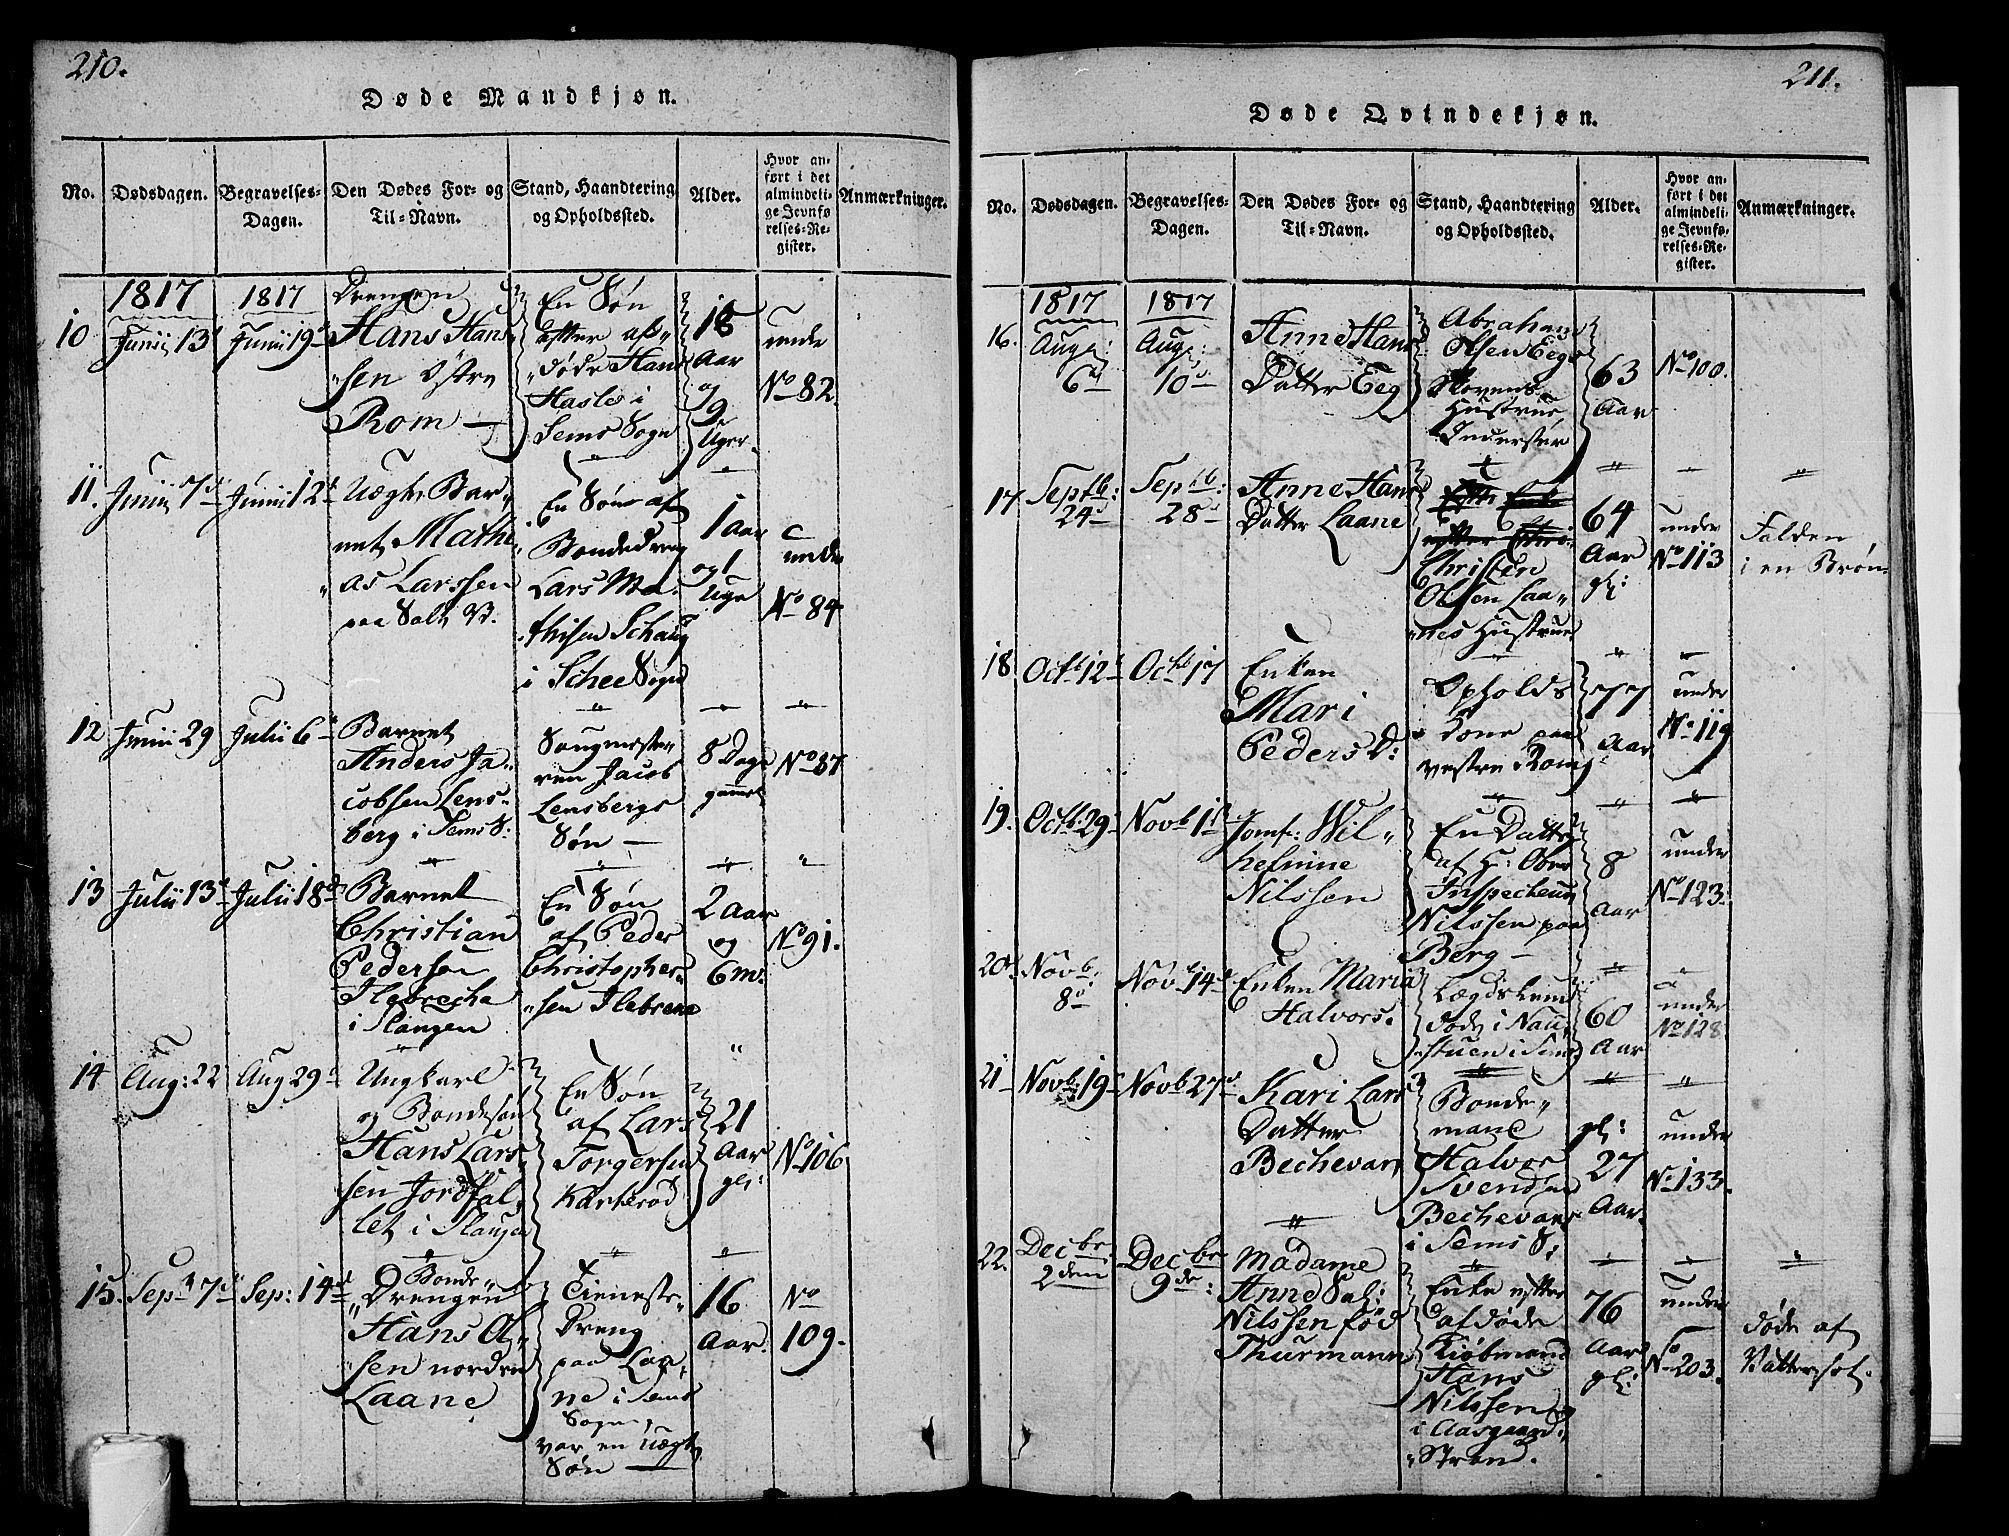 210.
Døde Mandkjøn.
No.
Dødsdagen.
Begravelses-
Dagen.
Den Dødes For- og
Til-Navn.
Stand, Haandtering
og Opholdssted.
Alder.
Hvor an-
ført i det
almindeli-
ge Jevnfø
relses-Re-
gister.
Anmærkninger.
1817
1817
10
Junii 13d
Junii 19d
Drengen
Hans Hans
„sen østre
Rom —
En Søn
efter af„
„døde Hans
Hasle i
Sems Sogn
18
Aar
og
9
Uger.
under
No 82.
11.
Junii 7d
Junii 12d
Uægte Bar„
net Mathi„
„as Larssen
paa
En Søn af
Bondedreng
Lars Ma„
thisen Schaug
i Schee Sogn
1 aar
og 1
Uge
under
No 84
12
Junii 29
Julii 6d
Barnet
Anders Ja„
cobsen Lens„
berg i Sems S:
ren Jacob
Lensbergs
Søn —
8 Dage
gammel
No 87
13
Julii 13d
Julii 18d
Barnet
Christian
Pedersen
i Slangen
En Søn
af Peder
Christopher„
„sen
2 Aar
og
6 m.
No 91.
14
Aug: 22
Aug 29d
Ungkarl
og Bondesøn
Hans Lars
sen Jordfal„
let i Slangen
En Søn
af Lars
Torgersen
Karterød
21
Aar
gl:
No 106
15.
Sep 7d
Sep: 14d
Bonde„
Drengen
Hans Ol„
sen nordre
Laane
Tieneste„
Dreng
paa Laa„
ne i Sems
Sogn,
var en uægte
Søn —
16
Aar.
No
109.
211.
Døde Qvindekjøn.
No.
Dødsdagen.
Begravelses-
Dagen.
Den Dødes For- og
Til-Navn.
Stand, Haandtering
og Opholdssted.
Alder.
Hvor an-
ført i det
almindeli-
ge Jevnfø-
relses-Re-
gister.
Anmærkninger.
1817
1817
16.
Aug:
6d
Aug:
10d
Anne Hans
Datter Eeg
Abraham
Olsen Eegs
Hustrue
63
Aar
No 100.
17
Septb:
24d
Septb:
28d
Anne Hans
Datter Laane
Christen
Olsen Laa„
„nes Hustrue
64
Aar
gl:
under
No 113
Falden
i en Brøn
18
Octb 12d
Octb 17
Enken
Mari
Peders D:
Opholds
Kone paa
vestre Rom
77
Aar
under
No 119
19.
Octb: 29
Novb 1d
Jomf: Wil„
helmine
Nilssen
En Datter
af H: Ober
Inspecteur
Nilssen paa
Berg —
8
Aar
under
No 123.
20
Novb:
8d
Novb 14d
Enken Maria
Halvors.
Lægdslem
død i Nau„
stuen i Sems
60
Aar
under
No 128
21
Novb 19d
Novb 27d
Kari Lars
Datter
Bechevar
Bonde„
mand
Halvor
Svendsen
Bechevars
i Sems S:
gl:
27
Aar.
under
No 133.
22.
Decbr.
2den
Decbr
9de:
Madame
Anne Sal:
Nilssen fød
Thurmann
Enke efter
afdøde
Kiøbmand
Hans
Nilssen
i Aasgaard„
„Strand.
76
Aar
gl:
under
No 203.
døde af
Vattersot.